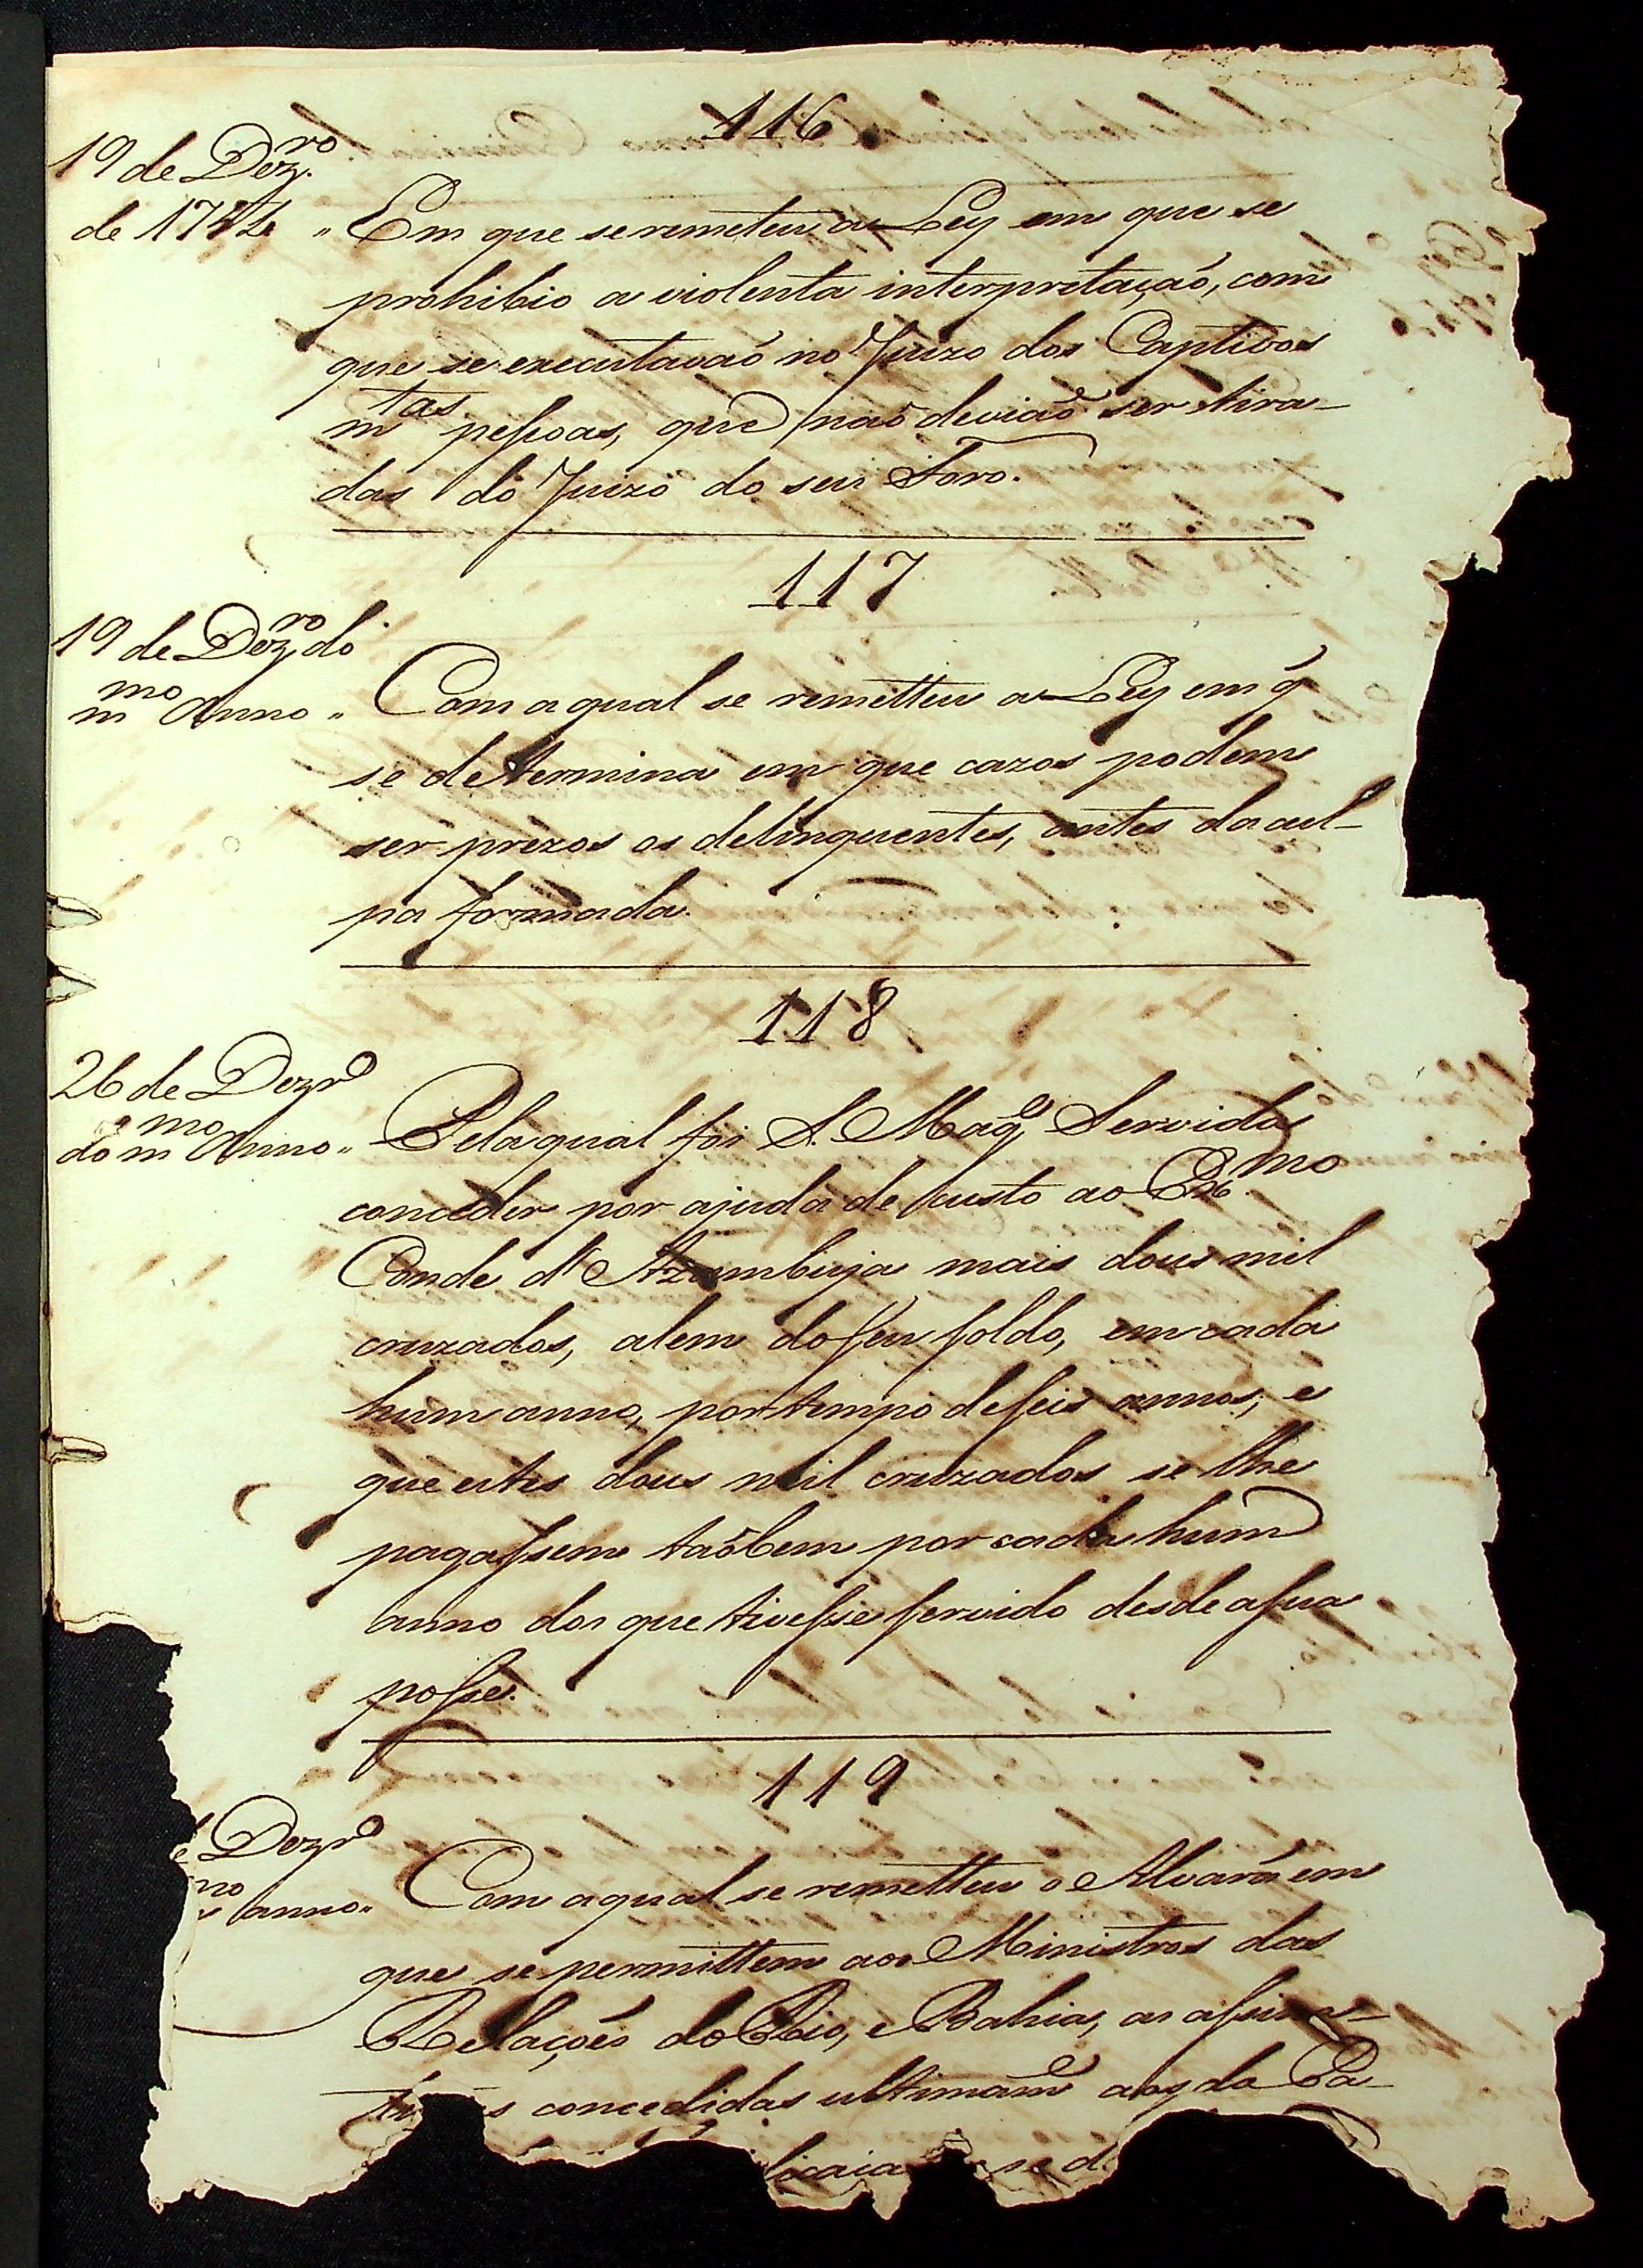 116
19 de Dez.ro
de 17 „ Em que se remeteu a Ley em que se
prohibio a violenta interpretaçaõ, com
que se executavaõ no Juizo dos Captivos
m.tas peſsoas, que naõ deviaõ ser tira-
das do Juizo do seu Foro.
117
19 de Dez.ro do
m.mo Anno „ Com a qual se remetteu a Ley em q̃
se determina em que cazos podem
ser prezos os delinquentes, antes da cul-
pa formada.
118
26 de Dezr.o
do m.mo Anno „ Pela qual foi S. Mag.e Servida
conceder por ajuda de custo ao Ex.mo
Conde d'Azambuja mais dous mil
cruzados, alem do ſeu ſoldo, em cada
hum anno, por tempo de ſeis annos; e
que estes dous mil cruzados se lhe
pagaſsem taõbem por cada hum
anno dos que tiveſse ſervido desde a ſua
poſse.
119
e Dezr.o
mo anno „ Com a qual se remetteu o Alvará em
que se permittem aos Ministros das
Relações do Rio, e Bahia, as aſsina-
turas concedidas ultimam.e aos da Ca-
se d